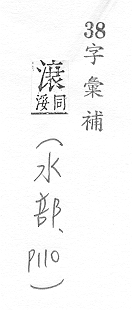 38字彙補
滖同浽
(水部、P110)